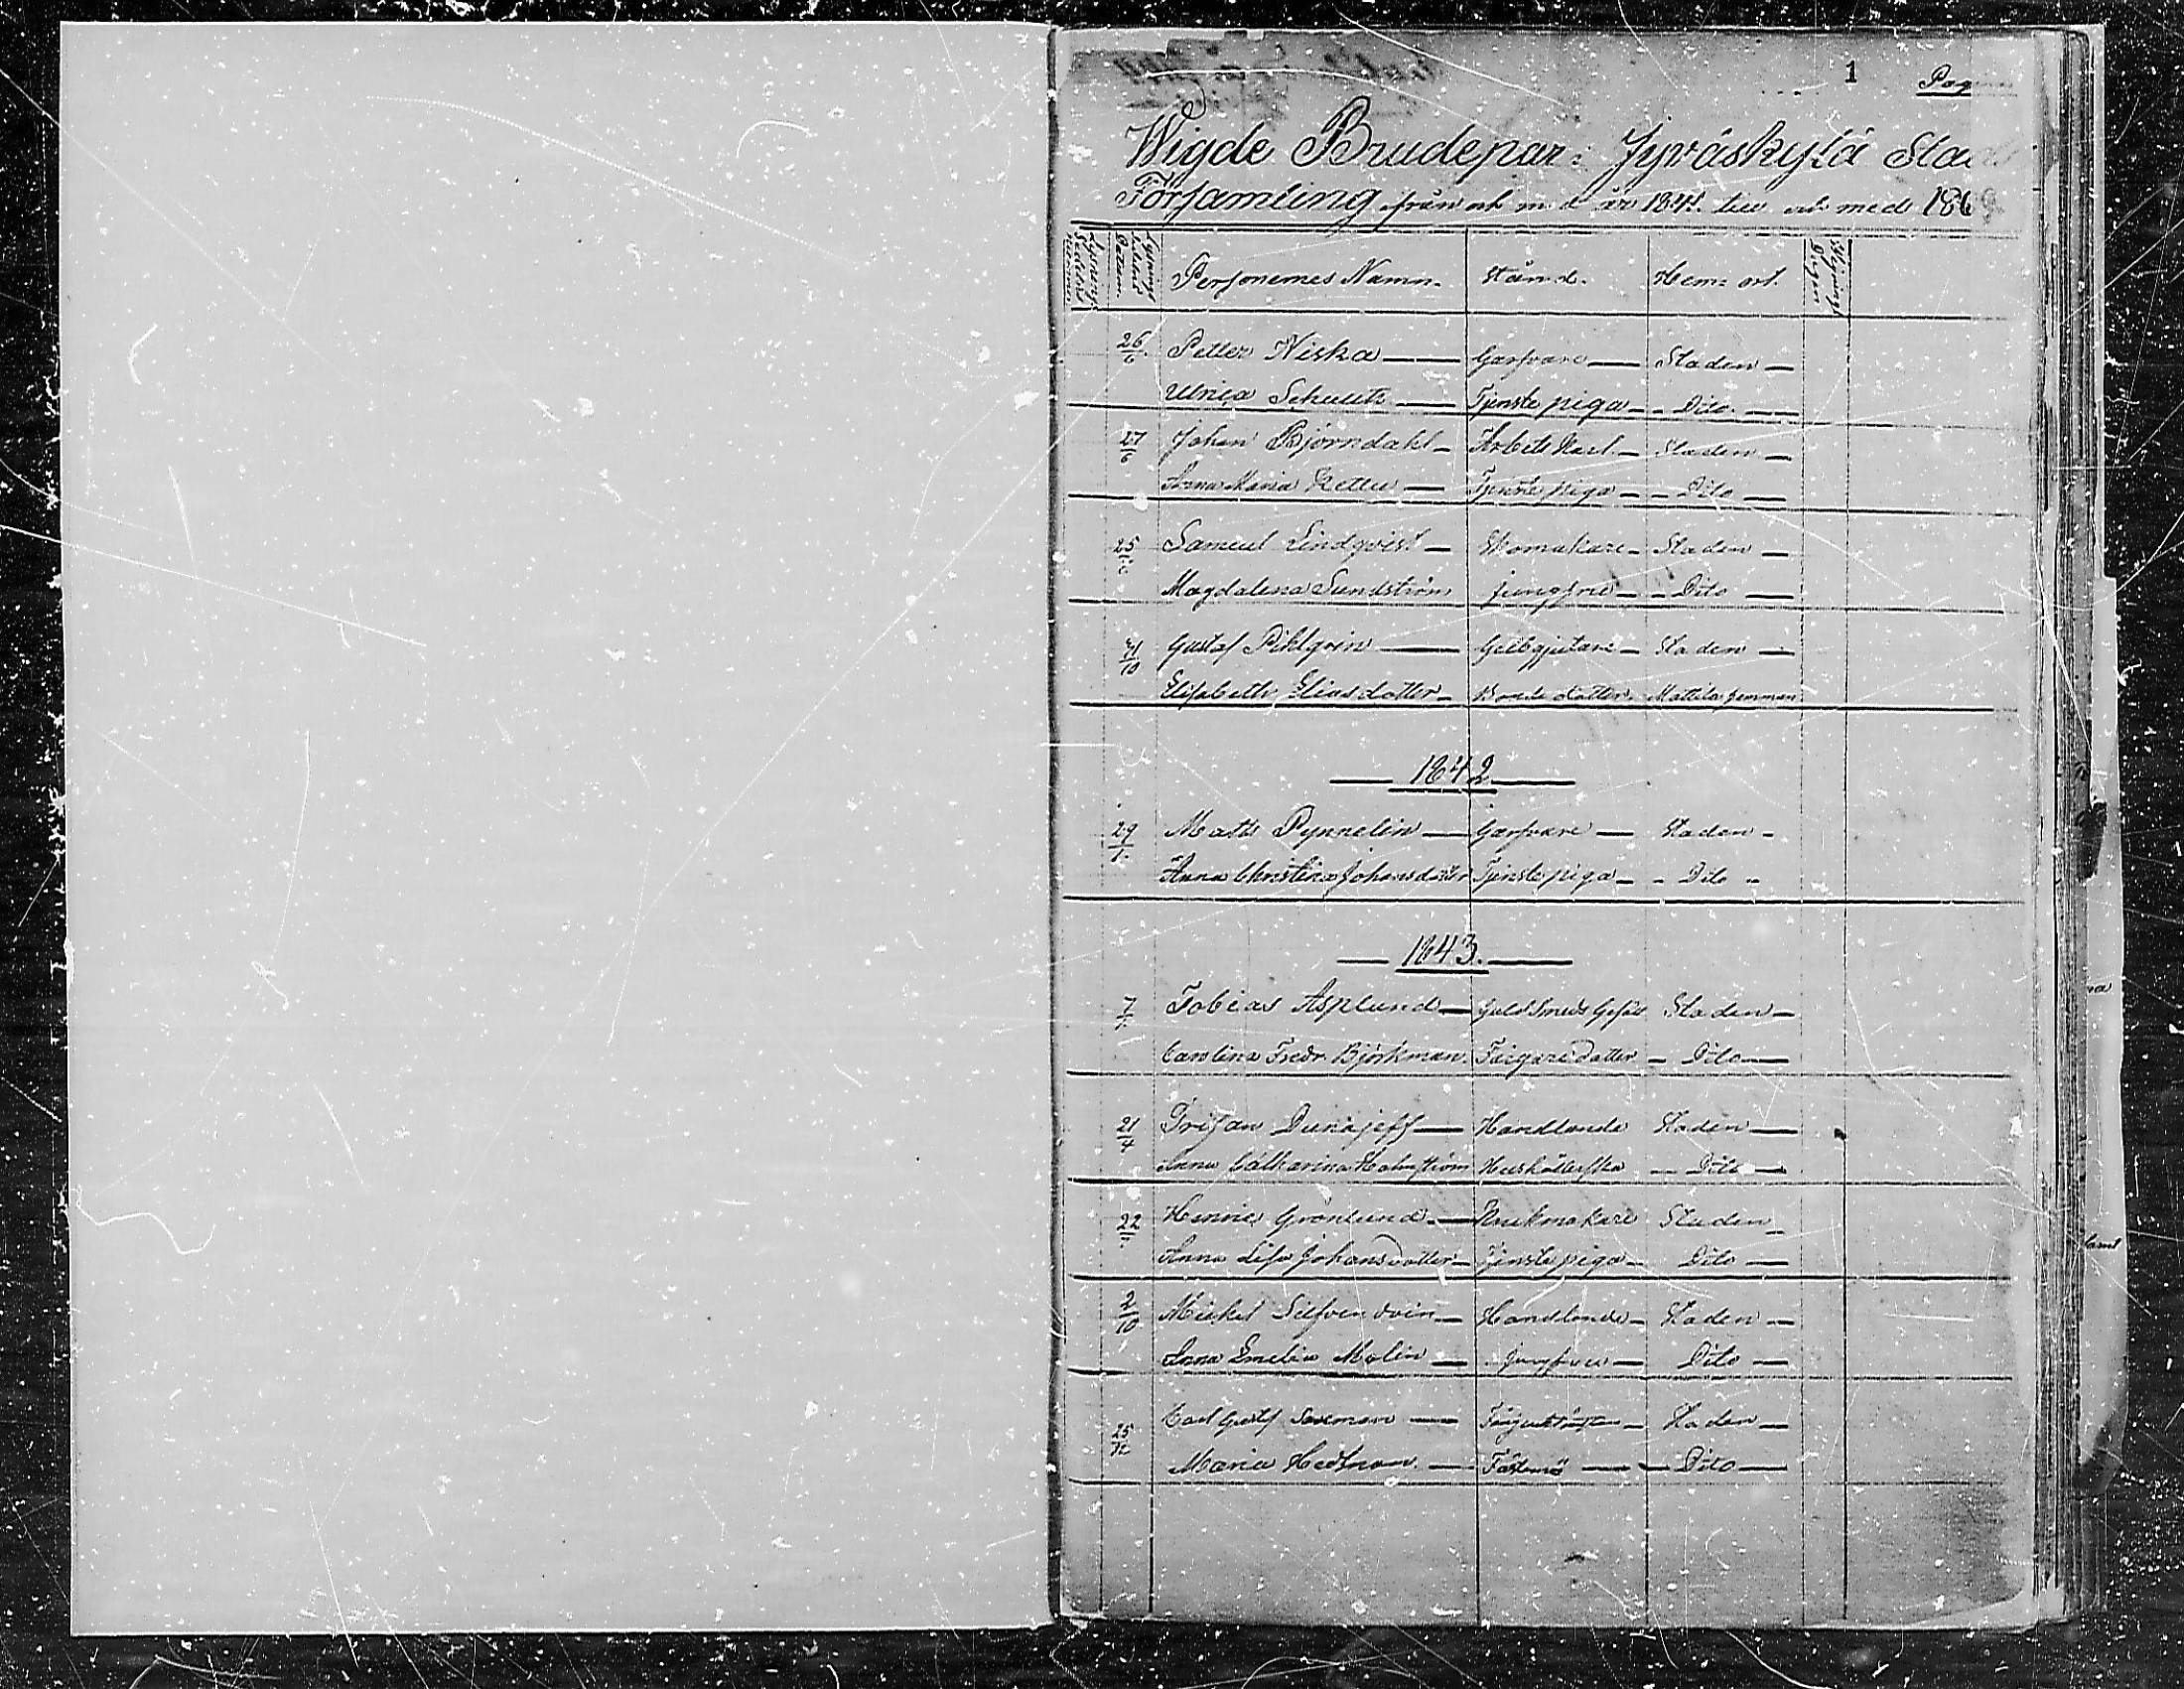 1
Wigde Brudepar i Jyväskylä Sta
Församling från och med år 1841 till och med 186
Lysnings Sedelns nummer Lysnings Datum Personernes Namn. Stånd. Hem-ort. Wignings Dagen
26/6 Petter Niska Garfvare Staden
Ulrica Schultz Tjenste piga Dito
27/6 Johan Björndahl Arbets Karl Staden
Anna Maria Tjenste piga Dito
25 Samuel Lindqvist Skomakare Staden
Magdalena Sundström jungfru Dito
31/10 Gustaf Pihlgrén Gelbgjutare Staden
Elisabeth Eliasdotter Bonde dotter Mattila hemman
1842
29/1 Matts Pynnelin Garfvare Staden
Anna Christina Johansdotter Tjenste piga Dito
1843.
7 Tobias Asplund Guld Smeds Gesäll Staden
Carolina Fredr. Björkman Färgare dotter Dito
21/4 Trifan Dunajeff Handlande Staden
Anna Catharina Holmström Hushållerska Dito
22 Henric Grönlund Krukmakare Staden
Anna Lisa Johansdotter Tjenste piga Dito
2/10 Mickel Handlande Staden
Anna Emelia Molin Jungfru Dito
25/12 Carl Gustf Saxman Staden
Maria Hedman Fästemö Dito